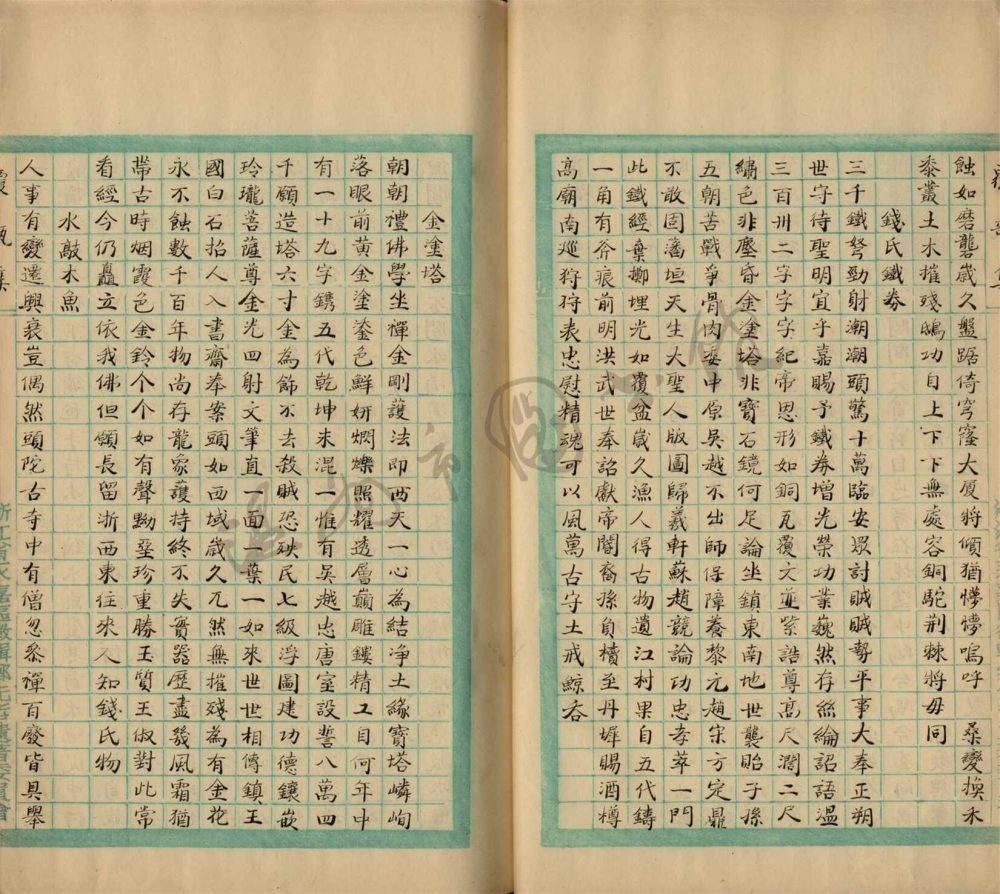 蝕如磨礱歲久盤踞倚穹窪大厦將傾猶懜懜嗚呼　桑變換禾
黍叢土木摧殘鴟功自上下下無處容銅駝荆棘將毋同
錢氏鐵券
三千鐵弩勁射潮潮頭驚十萬臨安眾討賊賊勢平事大奉正朔
世守待聖明宜乎嘉賜予鐵券增光榮功業巍然存絲綸詔語溫
三百卅二字字字紀帝恩形如銅瓦覆文並紫誥尊高尺濶二尺
繡色非壓昏金金塗塔非寶石鏡何足論坐鎮東南地世襲貽子孫
五朝苦戰爭骨肉委中原吳越不出師保障養黎元趙宋方定鼎
不敢固藩垣天生大聖人版圖歸羲軒蘇趙競論功忠孝萃一門
此鐵經棄擲埋光如覆盆歲久漁人得古物遺江村果自五代鑄
一角有斧痕前明洪武世奉詔獻帝閽裔孫負櫝至丹墀賜酒樽
高廟南巡狩狩表忠慰精魂可以風萬古守土戒鯨吞
金塗塔
朝朝禮佛學坐禪金剛護法即西天一心為結净土緣寶塔嶙峋
落眼前黃金塗鎏色鮮妍爛爍照耀透層巔雕鏤精工目何年中
有一十九字鐫五代乾坤未混一惟有吳越忠唐室設誓八萬四
千願造塔六寸金為飾不去殺賊恐殃民七級浮圖建功德鑲嵌
玲瓏菩薩尊金光四射文筆直一面一葉一如來世世相傳鎮王
國白石招人入書齋奉案頭如西域歲久兀然無摧殘為有金花
永不蝕數千百年物尚存龍象護持終不失寶器歷盡幾風霜猶
帶古時烟霞色金鈴个个如有聲黝堊珍重勝玉質王俶對此常
看經今仍矗立依我佛但願長留浙西東往來人知錢氏物
水敲木魚
人事有變遷興衰豈偶然頭陀古寺中有僧忽叅禪百廢皆具舉